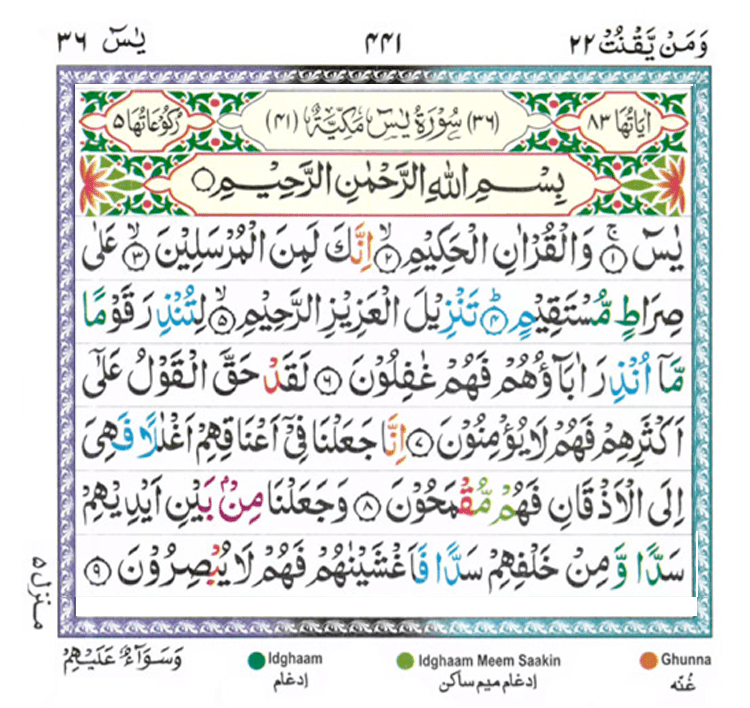 وَمَنْ يَّقْنُتْ ٢٢
٤٤١
يٰسٓ ٣٦
اٰيَاتُهَا ٨٣
(٣٦) سُوْرَةُ يٰسٓ مَكِّيَّةٌ (٤١)
رُكُوْعَاتُهَا ٥
بِسْمِ اللهِ الرَّحْمٰنِ الرَّحِيْمِ
يٰسٓ ۚ ١ وَالْقُرْاٰنِ الْحَكِيْمِ ۙ ٢ اِنَّكَ لَمِنَ الْمُرْسَلِيْنَ ۙ ٣ عَلٰى
صِرَاطٍ مُّسْتَقِيْمٍ ؕ ٤ تَنْزِيْلَ الْعَزِيْزِ الرَّحِيْمِ ۙ ٥ لِتُنْذِرَ قَوْمًا
مَّاۤ اُنْذِرَ اٰبَآؤُهُمْ فَهُمْ غٰفِلُوْنَ ٦ لَقَدْ حَقَّ الْقَوْلُ عَلٰٓى
اَكْثَرِهِمْ فَهُمْ لَا يُؤْمِنُوْنَ ٧ اِنَّا جَعَلْنَا فِيْۤ اَعْنَاقِهِمْ اَغْلٰلًا فَهِيَ
اِلَى الْاَذْقَانِ فَهُمْ مُّقْمَحُوْنَ ٨ وَجَعَلْنَا مِنْۢ بَيْنِ اَيْدِيْهِمْ
سَدًّا وَّمِنْ خَلْفِهِمْ سَدًّا فَاَغْشَيْنٰهُمْ فَهُمْ لَا يُبْصِرُوْنَ ٩
منزل ٥
وَسَوَآءٌ عَلَيْهِمْ
Idghaam
ادغام
Idghaam Meem Saakin
ادغام میم ساکن
Ghunna
غُنّه